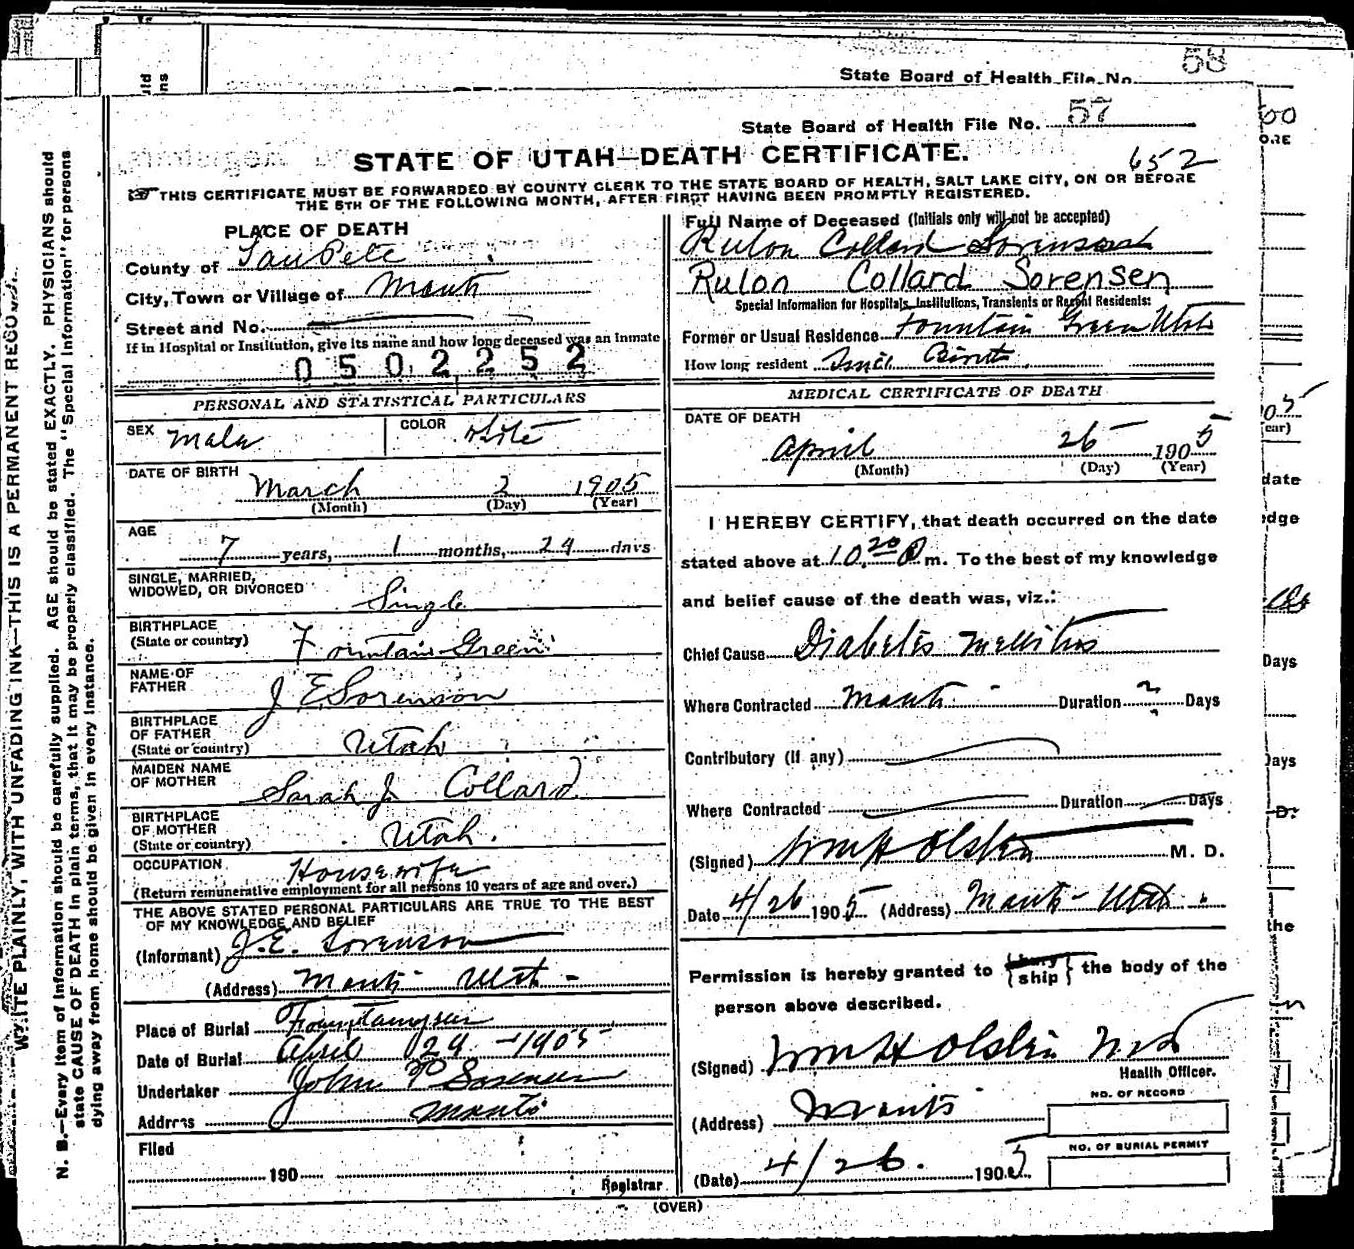 State Board of Health File No. 58
State Board of Health File No. 57
STATE OF UTAH—DEATH CERTIFICATE.
652
THIS CERTIFICATE MUST BE FORWARDED BY COUNTY CLERK TO THE STATE BOARD OF HEALTH, SALT LAKE CITY, ON OR BEFORE
THE 5TH OF THE FOLLOWING MONTH, AFTER FIRST HAVING BEEN PROMPTLY REGISTERED.
WRITE PLAINLY, WITH UNFADING INK—THIS IS A PERMANENT RECORD.
N. B.—Every item of information should be carefully supplied. AGE should be stated EXACTLY. PHYSICIANS should
state CAUSE OF DEATH in plain terms, that it may be properly classified. The "Special Information" for persons
dying away from home should be given in every instance.
PLACE OF DEATH
County of SanPete
City, Town or Village of Manti
Street and No.
If in Hospital or Institution, give its name and how long deceased was an Inmate
0502252
PERSONAL AND STATISTICAL PARTICULARS
SEX Male COLOR White
DATE OF BIRTH
March 2 1905
(Month) (Day) (Year)
AGE
7 years, 1 months, 24 days
SINGLE, MARRIED,
WIDOWED, OR DIVORCED Single
BIRTHPLACE
(State or country) Fountain Green
NAME OF
FATHER J E Sorenson
BIRTHPLACE
OF FATHER
(State or country) Utah
MAIDEN NAME
OF MOTHER Sarah J. Collard
BIRTHPLACE
OF MOTHER
(State or country) Utah.
OCCUPATION Housewife
(Return remunerative employment for all persons 10 years of age and over.)
THE ABOVE STATED PERSONAL PARTICULARS ARE TRUE TO THE BEST
OF MY KNOWLEDGE AND BELIEF
(Informant) J.E. Sorenson
(Address) Manti Utah
Place of Burial Fountaingreen
Date of Burial April 29 - 1905
Undertaker John P Sorensen
Address Manti
Filed
190
Registrar
Full Name of Deceased (Initials only will not be accepted)
Rulon Collard Sorensen
Rulon Collard Sorensen
Special Information for Hospitals, Institutions, Transients or Recent Residents:
Former or Usual Residence Fountain Green Utah
How long resident Since Birth
MEDICAL CERTIFICATE OF DEATH
DATE OF DEATH
April 26 1905
(Month) (Day) (Year)
I HEREBY CERTIFY, that death occurred on the date
stated above at 10.20 P m. To the best of my knowledge
and belief cause of the death was, viz.:
Chief Cause Diabetes Mellitus
Where Contracted Manti Duration ? Days
Contributory (if any)
Where Contracted Duration Days
(Signed) Wm H Olsten M. D.
Date 4/26 1905 (Address) Manti - Utah.
Permission is hereby granted to {bury ship} the body of the
person above described.
(Signed) Wm H Olsten MD
Health Officer.
(Address) Manti
NO. OF RECORD
NO. OF BURIAL PERMIT
(Date) 4/26. 1905
(OVER)